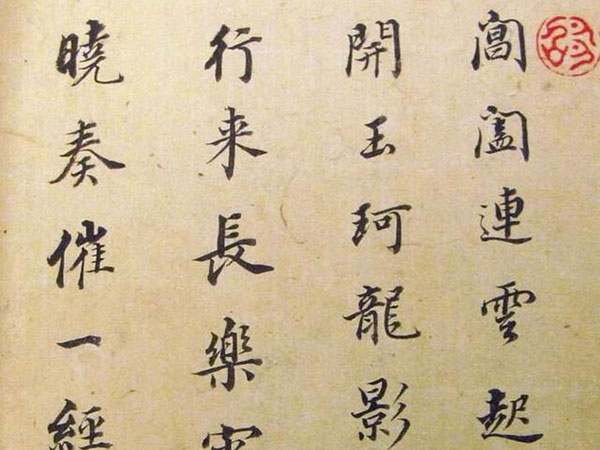 閶闔連雲起
開玉珂龍影
行来長樂
曉奏催一經